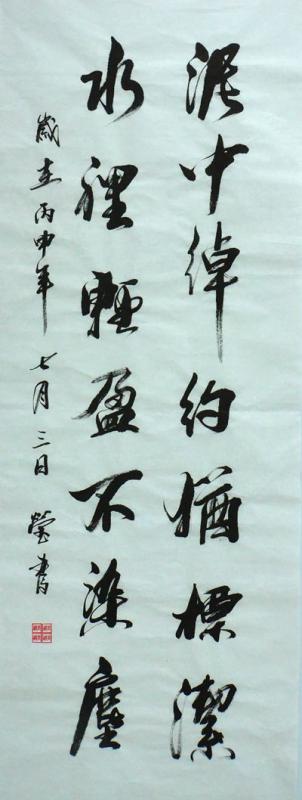 泥中綽約猶標潔
水裡輕盈不染塵
歲在丙申年 七月三日 瑩書